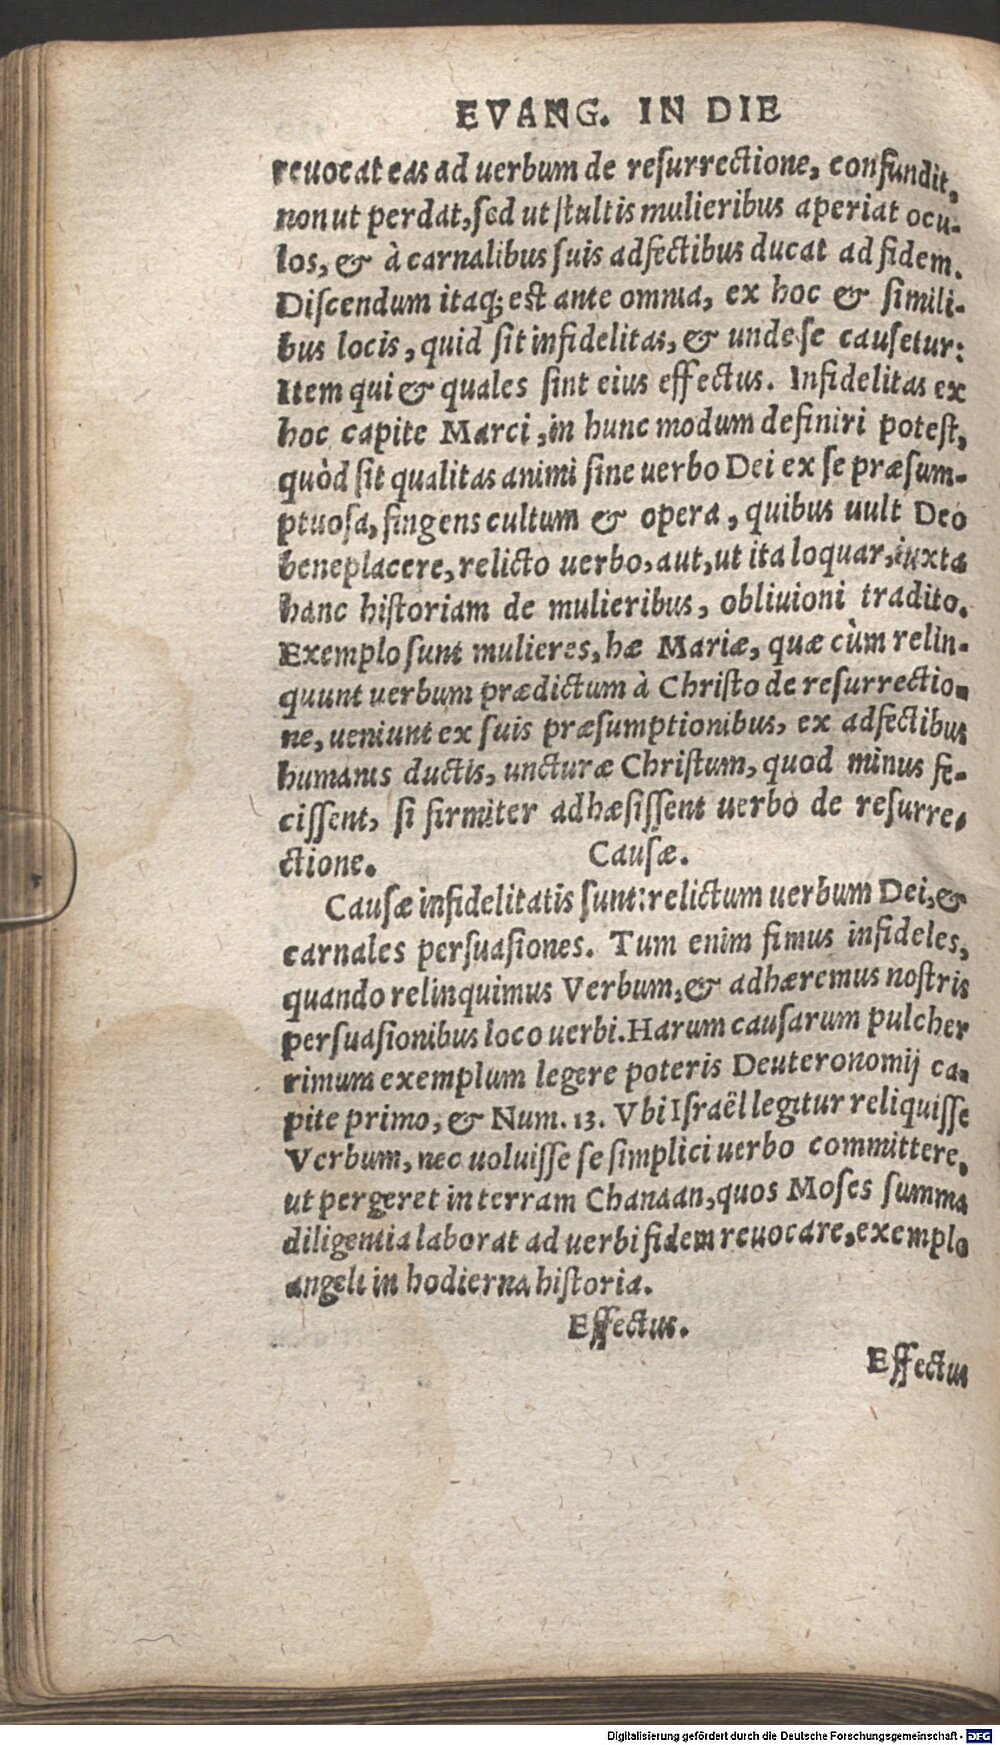 EVANG. IN DIE
reuocat eas ad uerbum de resurrectione, confundit,
non ut perdat, sed ut stultis mulieribus aperiat ocu-
los, & à carnalibus suis adfectibus ducat ad fidem.
Discendum itaq; est ante omnia, ex hoc & simili-
bus locis, quid sit infidelitas, & unde se causetur:
Item qui & quales sint eius effectus. Infidelitas ex
hoc capite Marci, in hunc modum definiri potest,
quòd sit qualitas animi sine uerbo Dei ex se præsum-
ptuosa, fingens cultum & opera, quibus uult Deo
beneplacere, relicto uerbo, aut, ut ita loquar, iuxta
hanc historiam de mulieribus, obliuioni tradito.
Exemplo sunt mulieres, hæ Mariæ, quæ cùm relin-
quunt uerbum prædictum à Christo de resurrectio-
ne, ueniunt ex suis præsumptionibus, ex adfectibus
humanis ductis, uncturæ Christum, quod minus fe-
cissent, si firmiter adhæsissent uerbo de resurre-
ctione. Causæ.
Causæ infidelitatis sunt: relictum uerbum Dei, &
carnales persuasiones. Tum enim fimus infideles,
quando relinquimus Verbum, & adhæremus nostris
persuasionibus loco uerbi. Harum causarum pulcher
rimum exemplum legere poteris Deuteronomij ca-
pite primo, & Num. 13. Vbi Israël legitur reliquisse
Verbum, nec uoluisse se simplici uerbo committere,
ut pergeret in terram Chanaan, quos Moses summa
diligentia laborat ad uerbi fidem reuocare, exemplo
angeli in hodierna historia.
Effectus.
Effectus
Digitalisierung gefördert durch die Deutsche Forschungsgemeinschaft - DFG